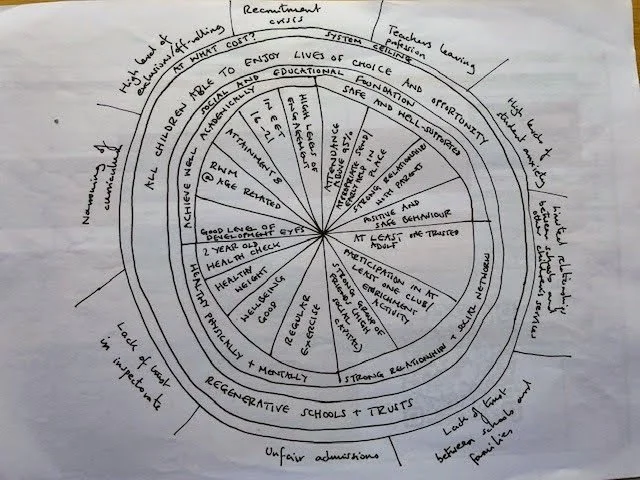 Recruitment
crisis
Teachers leaving
profession
High levels of
student anxiety
Limited relationships
between schools and
other children's services
Lack of trust
between schools and
families
Unfair admissions
Lack of trust
in inspectorate
Narrowing of
curriculum
High level of
exclusions/off-rolling
AT WHAT COST?
SYSTEM CEILING
ALL CHILDREN ABLE TO ENJOY LIVES OF CHOICE AND OPPORTUNITY
REGENERATIVE SCHOOLS + TRUSTS
SOCIAL AND EDUCATIONAL FOUNDATION
ACHIEVE WELL ACADEMICALLY
SAFE AND WELL-SUPPORTED
STRONG RELATIONSHIPS + SOCIAL NETWORKS
HEALTHY PHYSICALLY + MENTALLY
HIGH LEVELS OF
ENGAGEMENT
IN EET
16-21
ATTAINMENT 8
RWM
@ AGE RELATED
GOOD LEVEL OF
DEVELOPMENT EYFS
ATTENDANCE
ABOVE 95%
APPROPRIATE SEND/
EARLY HELP IN
PLACE
STRONG RELATIONSHIP
WITH PARENTS
POSITIVE AND
SAFE BEHAVIOUR
AT LEAST ONE TRUSTED
ADULT
PARTICIPATION IN AT
LEAST ONE CLUB/
ENRICHMENT
ACTIVITY
STRONG GROUP OF
FRIENDS (HIGH
SOCIAL
CAPITAL)
REGULAR
EXERCISE
WELLBEING
GOOD
HEALTHY
WEIGHT
2-YEAR OLD
HEALTH CHECK